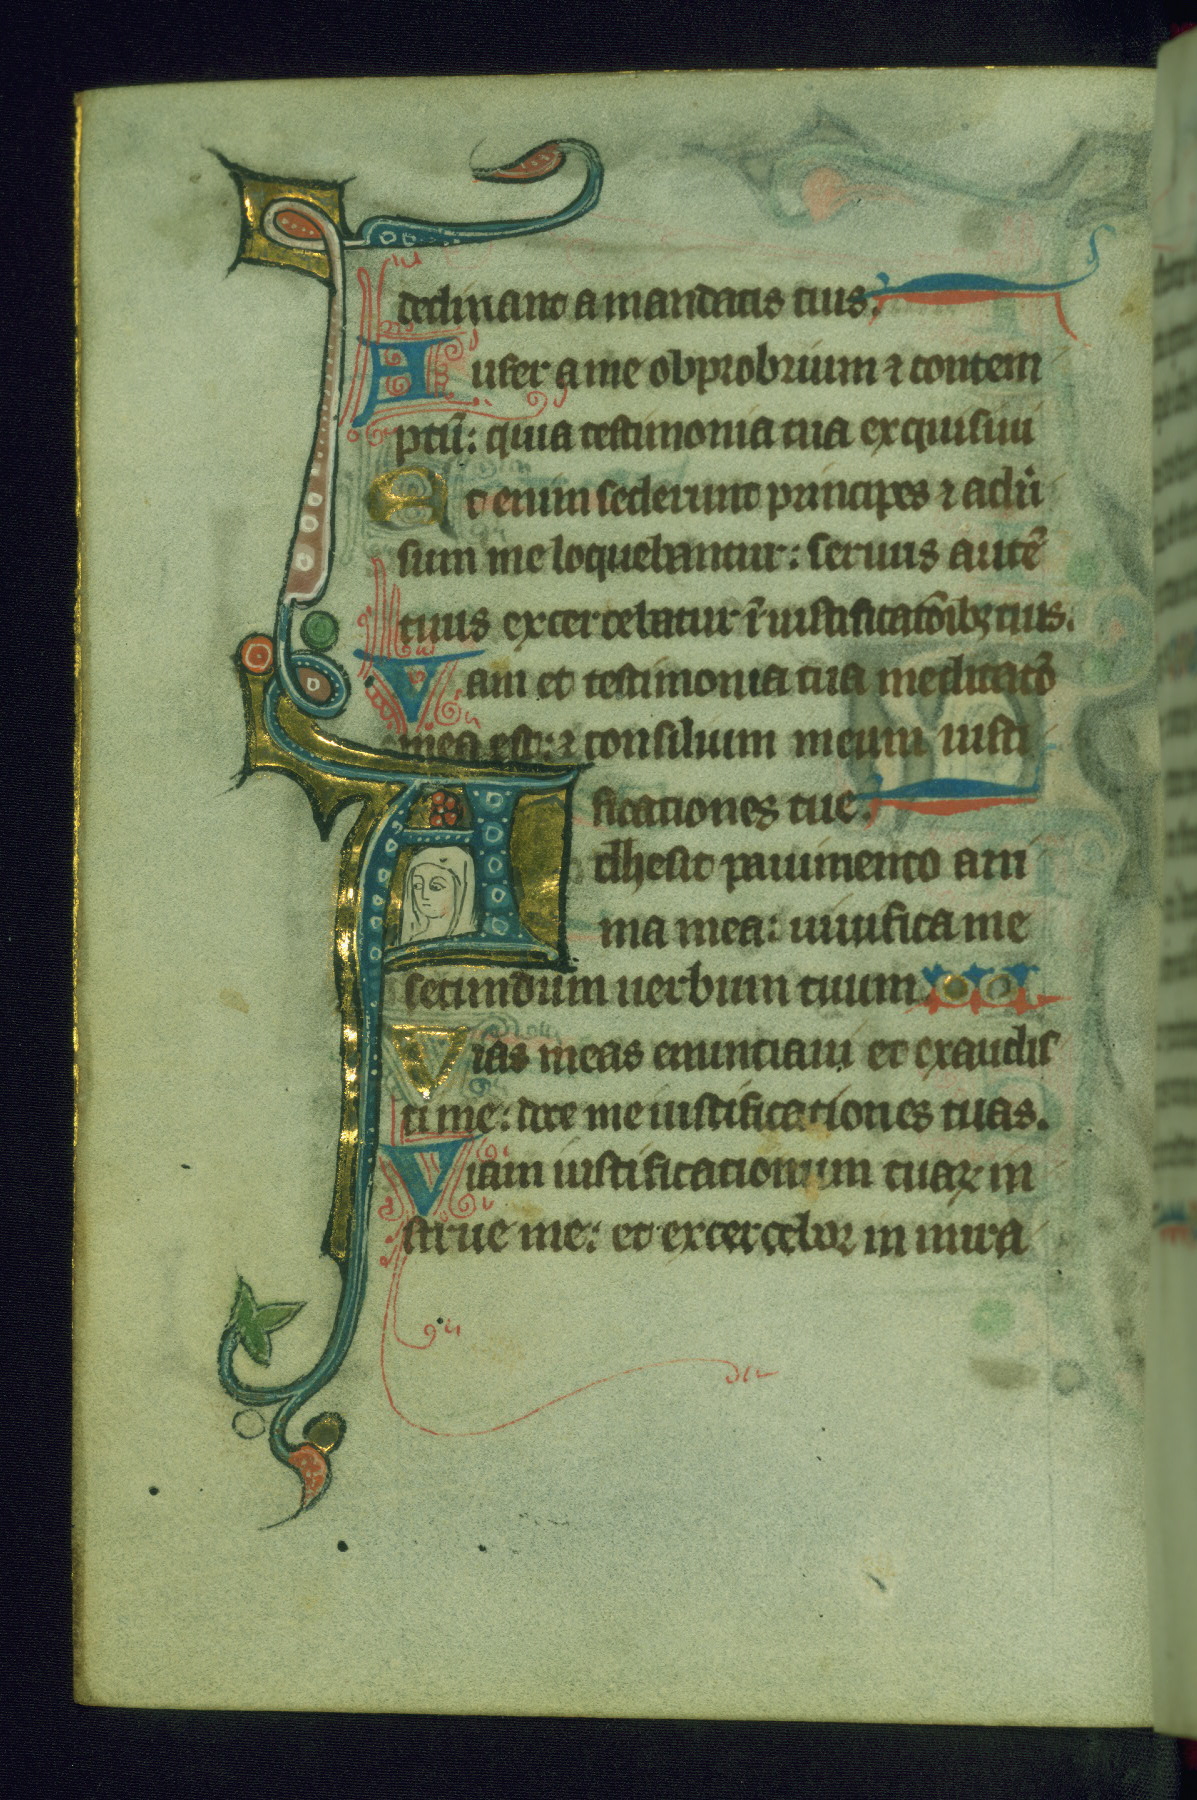 declinant a mandatis tuis.
Aufer a me obprobrium ⁊ contem
ptū: quia testimonia tua exquisiui
Et enim sederunt principes ⁊ aduͥ
sum me loquebantur: seruus autē
tuus excercebatur ī iustificatōībꝫ tuis.
Nam et testimonia tua meditatō
mea est: ⁊ consilium meum iusti
ficationes tue.
Adhesit pauimento ani
ma mea: uiuifica me
secundum uerbum tuum
Vias meas enuntiaui et exaudis
ti me: doce me iustificationes tuas.
Viam iustificationum tuaꝝ in
strue me: et excercebor in mira